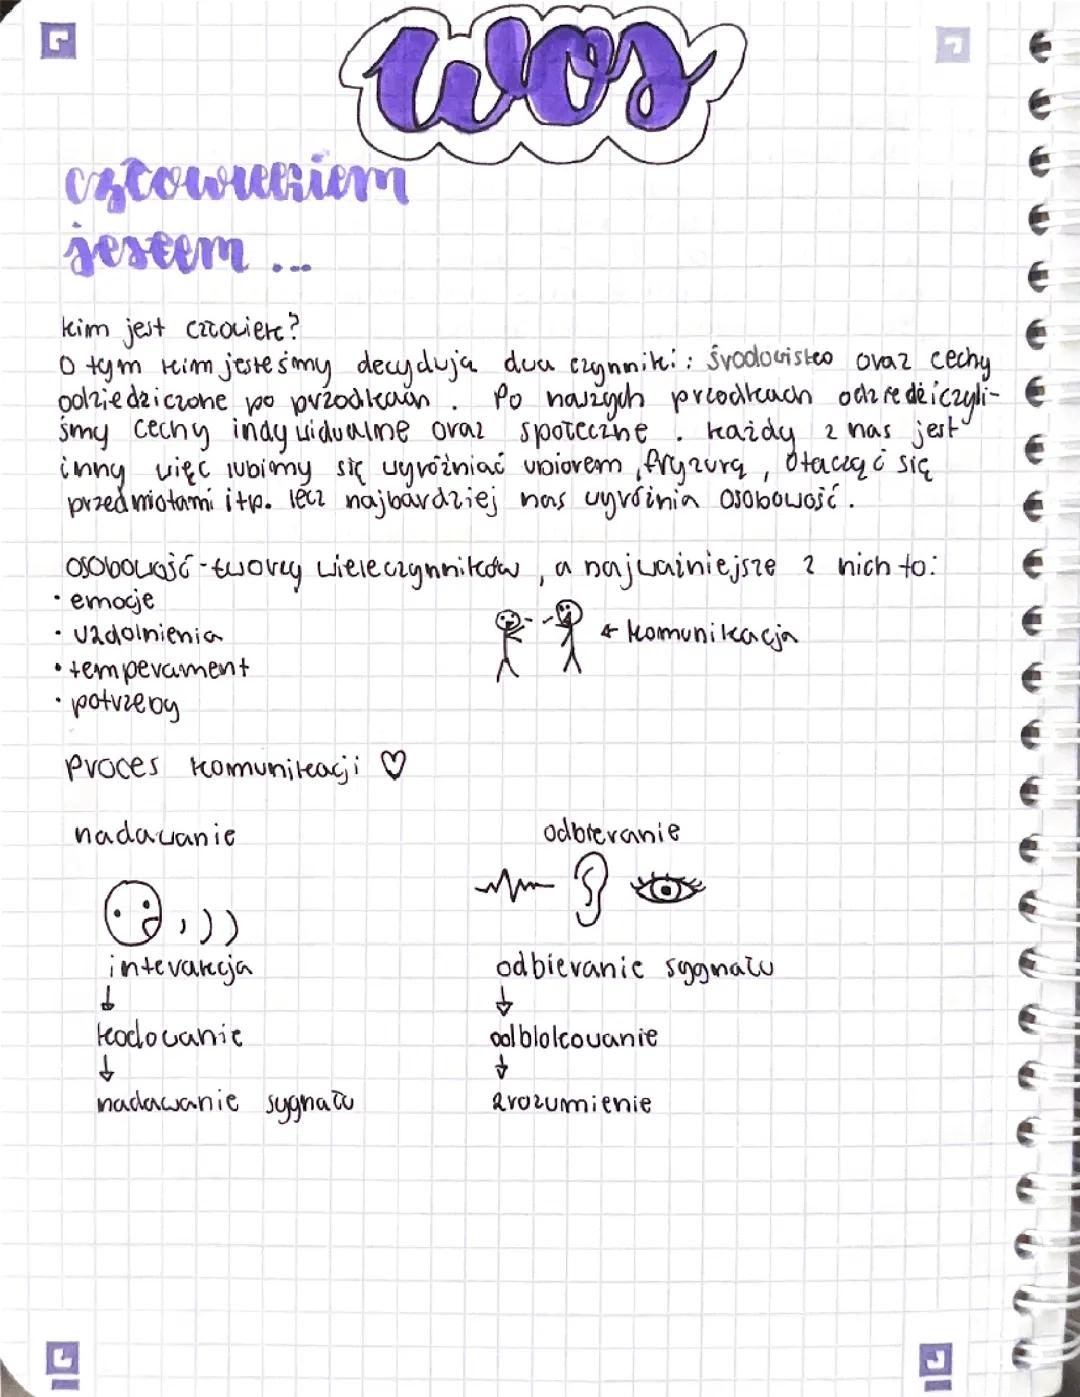 wos
człowiekiem
jestem ...
kim jest człowiek?
O tym kim jesteśmy decydują dwa czynniki: środowisko oraz cechy
odziedziczone po przodkach. Po naszych przodkach odziedziczyli-
śmy cechy indywidualne oraz społeczne. każdy z nas jest
inny więc lubimy się wyróżniać ubiorem, fryzurą, otaczać się
przedmiotami itp. lecz najbardziej nas wyróżnia osobowość.
osobowość - tworzy wiele czynników, a najważniejsze z nich to:
• emocje
• uzdolnienia
← komunikacja
• temperament
• potrzeby
Proces komunikacji ♡
nadawanie odbieranie
interakcja odbieranie sygnału
↓ ↓
kodowanie odblokowanie
↓ ↓
nadawanie sygnału zrozumienie